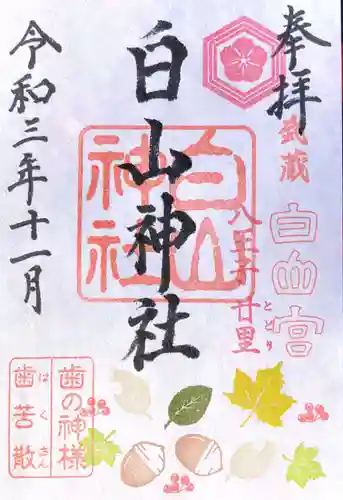 奉拝
武蔵
白山宮
八王子
廿里
とどり
白山神社
白山
神社
令和三年十一月
歯の神様
歯苦散
はくさん